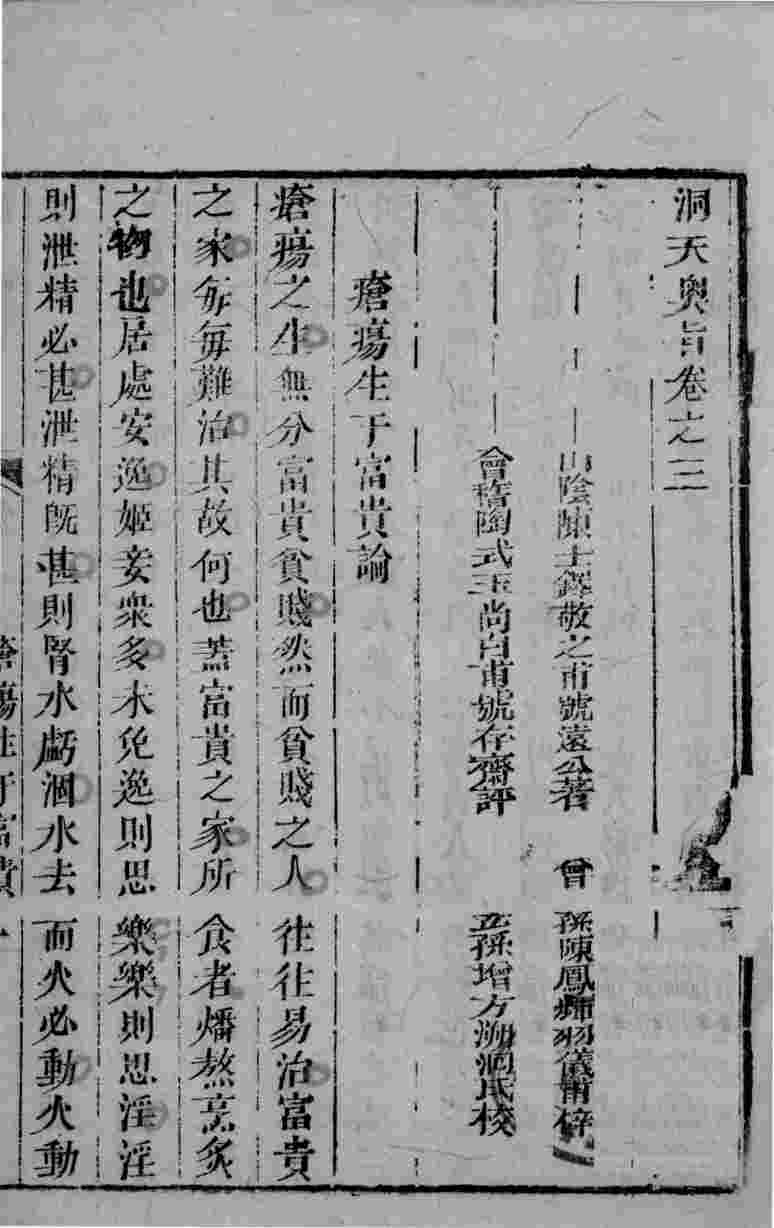 洞天奧旨卷之三
山陰陳士鐸敬之甫號遠公著　曾孫陳鳳輝羽儀甫梓
會稽陶式玉尚白甫號存齋評　五孫增方溯洄氏校
瘡瘍生于富貴論
瘡瘍之生無分富貴貧賤然而貧賤之人往往易治富貴
之家每每難治其故何也蓋富貴之家所食者燔熬烹炙
之物也居處安逸姬妾衆多未免逸則思樂樂則思淫淫
則泄精必甚泄精旣甚則腎水虧涸水去而火必動火動
瘡瘍生于富貴 一